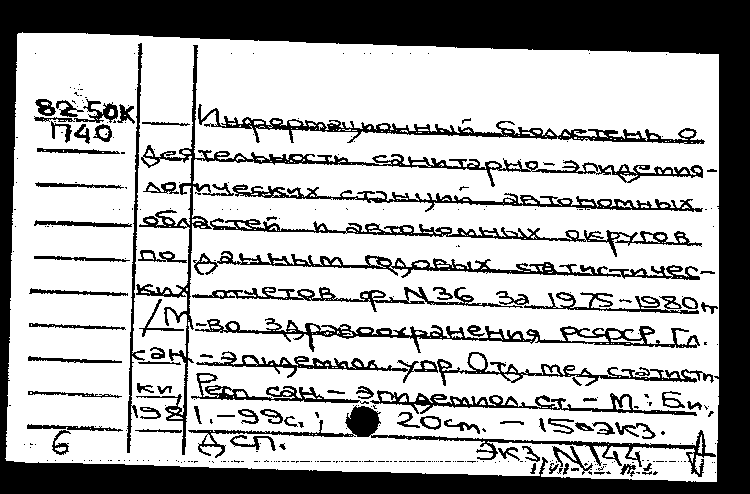 82-50К
1740
Информационный бюллетень о
деятельности санитарно-эпидемио-
логических станций автономных
областей и автономных округов
по данным годовых статистичес-
ких отчетов ф. N36 за 1975-1980гг
/М-во здравоохранения РСФСР. Гл.
сан.-эпидемиол. упр. Отд. мед. статисти-
ки, Респ. сан.-эпидемиол. ст. - М.: Б.и.,
1981. - 99с.; 20см. - 150экз.
6 Дсп. Экз. N144